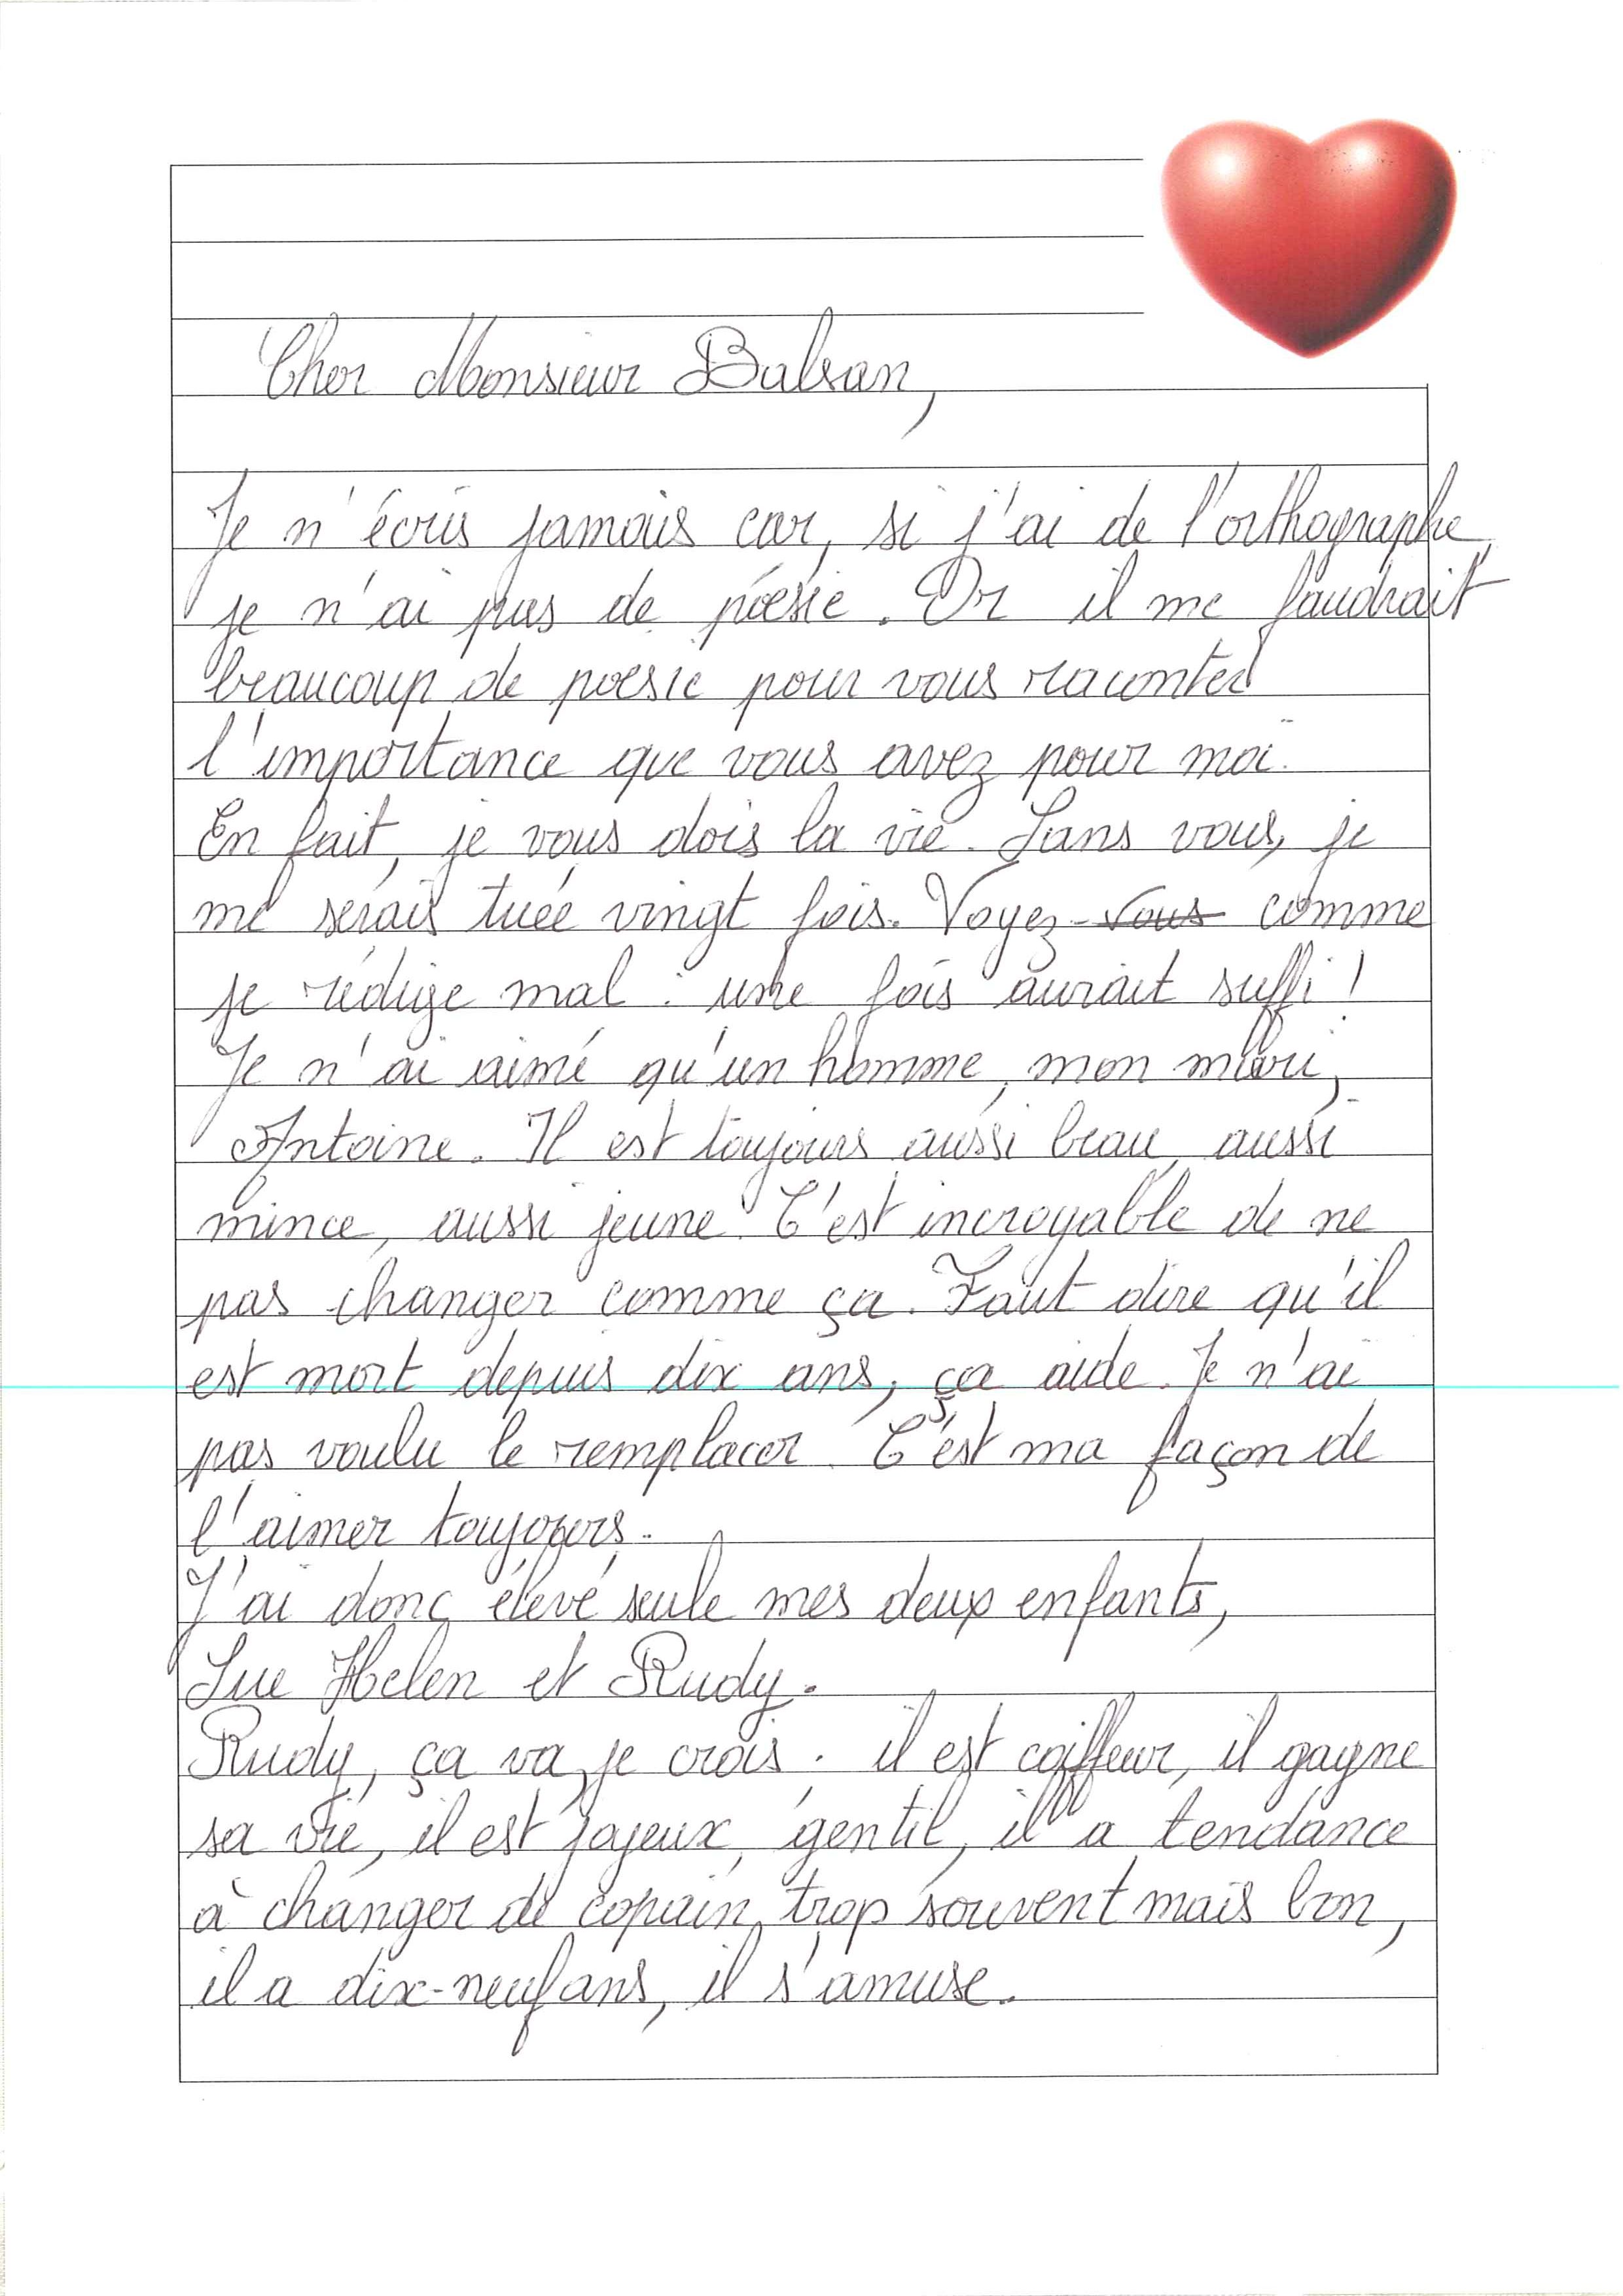 Cher Monsieur Balsan,
Je n'écris jamais car, si j'ai de l'orthographe,
je n'ai pas de poésie. Or il me faudrait
beaucoup de poésie pour vous raconter
l'importance que vous avez pour moi.
En fait, je vous dois la vie. Sans vous, je
me serais tuée vingt fois. Voyez-vous comme
je rédige mal : une fois aurait suffi !
Je n'ai aimé qu'un homme, mon mari,
Antoine. Il est toujours aussi beau, aussi
mince, aussi jeune. C'est incroyable de ne
pas changer comme ça. Faut dire qu'il
est mort depuis dix ans, ça aide. Je n'ai
pas voulu le remplacer. C'est ma façon de
l'aimer toujours.
J'ai donc élevé seule mes deux enfants,
Sue Helen et Rudy.
Rudy, ça va, je crois : il est coiffeur, il gagne
sa vie, il est joyeux, gentil, il a tendance
à changer de copain trop souvent mais bon,
il a dix-neuf ans, il s'amuse.